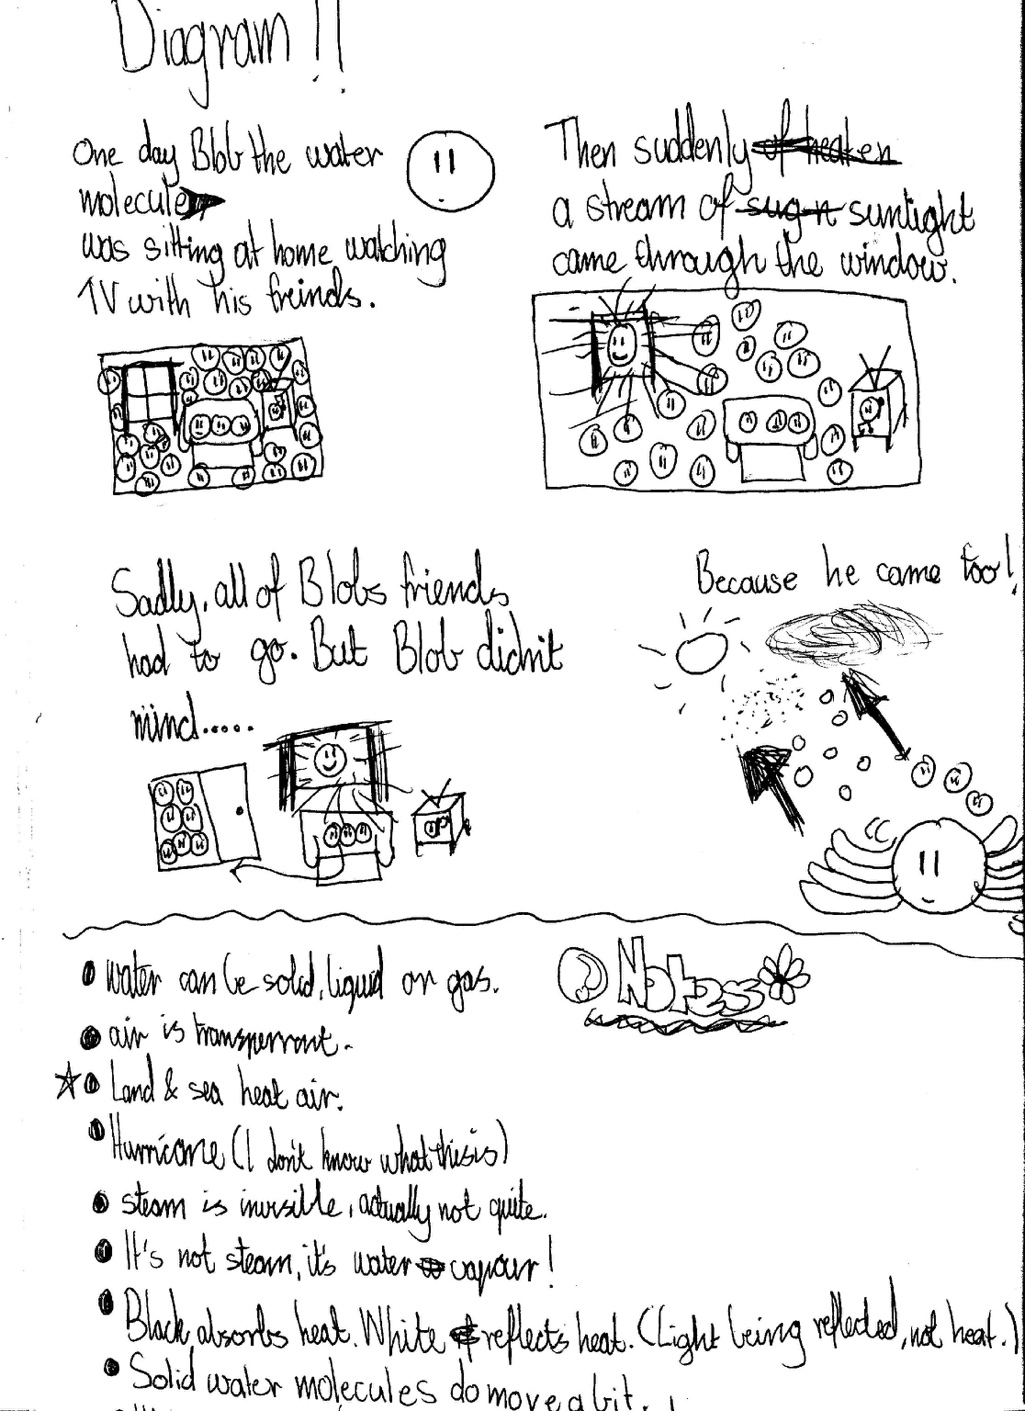 Diagram !!
One day Blob the water
molecule
was sitting at home watching
TV with his freinds.
Then suddenly of heaten
a stream of sug n sunlight
came through the window.
Sadly, all of Blobs friends
had to go. But Blob didn't
mind.....
Because he came too!
Notes
water can be solid, liquid or gas.
air is transperrant.
Land & sea heat air.
Hurricane (I don't know what this is)
steam is invisible, actually not quite.
It's not steam, it's water vapour!
Black, absorbs heat. White reflects heat. (Light being reflected, not heat.)
Solid water molecules do move a bit.